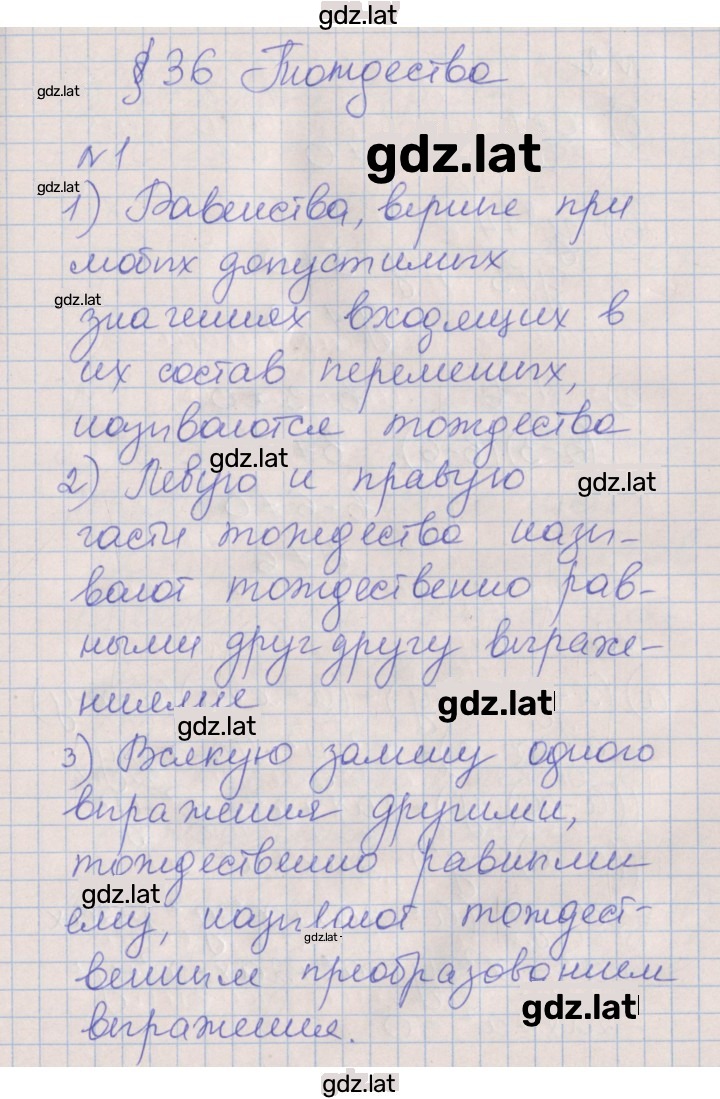 gdz.lat
§ 36 Тождества
gdz.lat
№1
gdz.lat
gdz.lat
1) Равенства, верные при
любых допустимых
gdz.lat
значениях входящих в
их состав переменных,
называются тождества
gdz.lat
2) Левую и правую
gdz.lat
части тождества назы-
вают тождественно рав-
ными друг другу выраже-
ниями
gdz.lat
gdz.lat
3) Всякую замену одного
выражения другими,
тождественно равными
gdz.lat
ему, называют тождест-
gdz.lat
венным преобразованием
gdz.lat
выражения.
gdz.lat